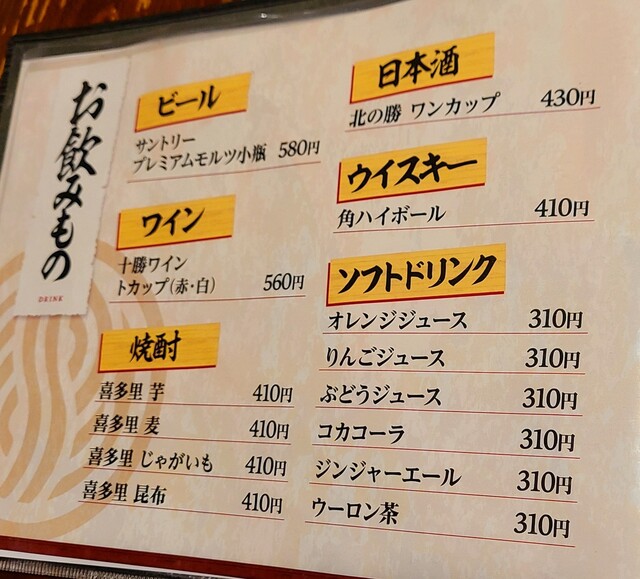 お飲みもの
DRINK
ビール
サントリー
プレミアムモルツ小瓶 580円
ワイン
十勝ワイン
トカップ(赤・白) 560円
焼酎
喜多里 芋 410円
喜多里 麦 410円
喜多里 じゃがいも 410円
喜多里 昆布 410円
日本酒
北の勝 ワンカップ 430円
ウイスキー
角ハイボール 410円
ソフトドリンク
オレンジジュース 310円
りんごジュース 310円
ぶどうジュース 310円
コカコーラ 310円
ジンジャーエール 310円
ウーロン茶 310円